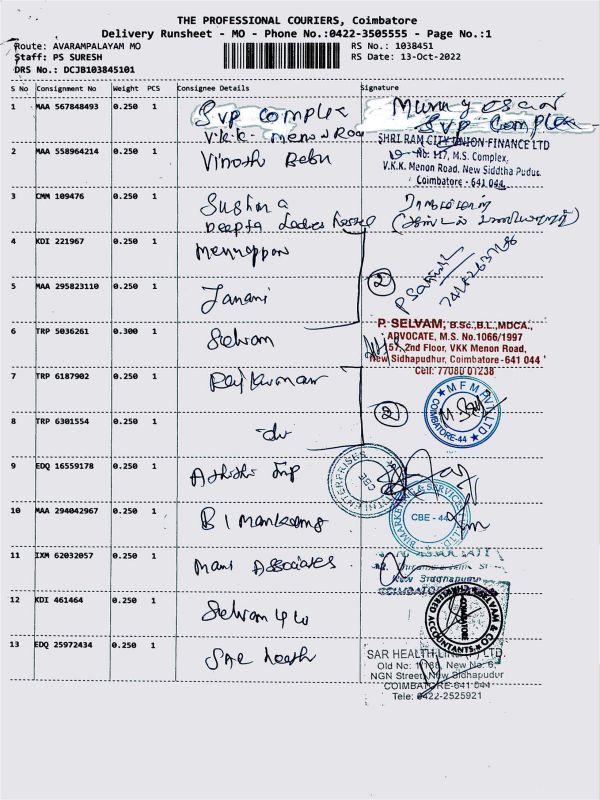 THE PROFESSIONAL COURIERS, Coimbatore
Delivery Runsheet - MO - Phone No.:0422-3505555 - Page No.:1
Route: AVARAMPALAYAM MO RS No.: 1038451
Staff: PS SURESH RS Date: 13-Oct-2022
DRS No.: DCJB103845101
S No Consignment No Weight PCS Consignee Details Signature
1 MAA 567848493 0.250 1 Svp complex
V.K.K. Menon Road Svp Complex
SHRI RAM CITY UNION FINANCE LTD
2 MAA 558964214 0.250 1 Vinoth Babu No: 117, M.S. Complex,
V.K.K. Menon Road, New Siddha Pudur,
Coimbatore - 641 044
3 CMM 109476 0.250 1 Sushma
Deepta Ladies hostel
4 KDI 221967 0.250 1 Meyyappan
2
5 MAA 295823110 0.250 1 Janani
6 TRP 5036261 0.300 1 Selvam
P. SELVAM, B.Sc.,B.L.,MDCA.,
ADVOCATE, M.S. No.1066/1997
157, 2nd Floor, VKK Menon Road,
New Sidhapudhur, Coimbatore - 641 044
Cell: 77080 01238
7 TRP 6187902 0.250 1 Rajkumar
2
MFM PVT LTD
COIMBATORE-44
8 TRP 6301554 0.250 1 dv
9 EDQ 16559178 0.250 1 Athithi Imp
ENTERPRISES
CBE
10 MAA 294042967 0.250 1
CBE - 44
11 IXM 62032057 0.250 1 Mani Associates
New Siddhapudur
COIMBATORE
12 KDI 461464 0.250 1 Selvam & co
SELVAM & CO
COIMBATORE
CHARTERED ACCOUNTANTS
13 EDQ 25972434 0.250 1 SAR health
SAR HEALTHLINE (P) LTD.
Old No: 1/188, New No: 6,
NGN Street, New Sidhapudur
COIMBATORE-641 044
Tele: 0422-2525921